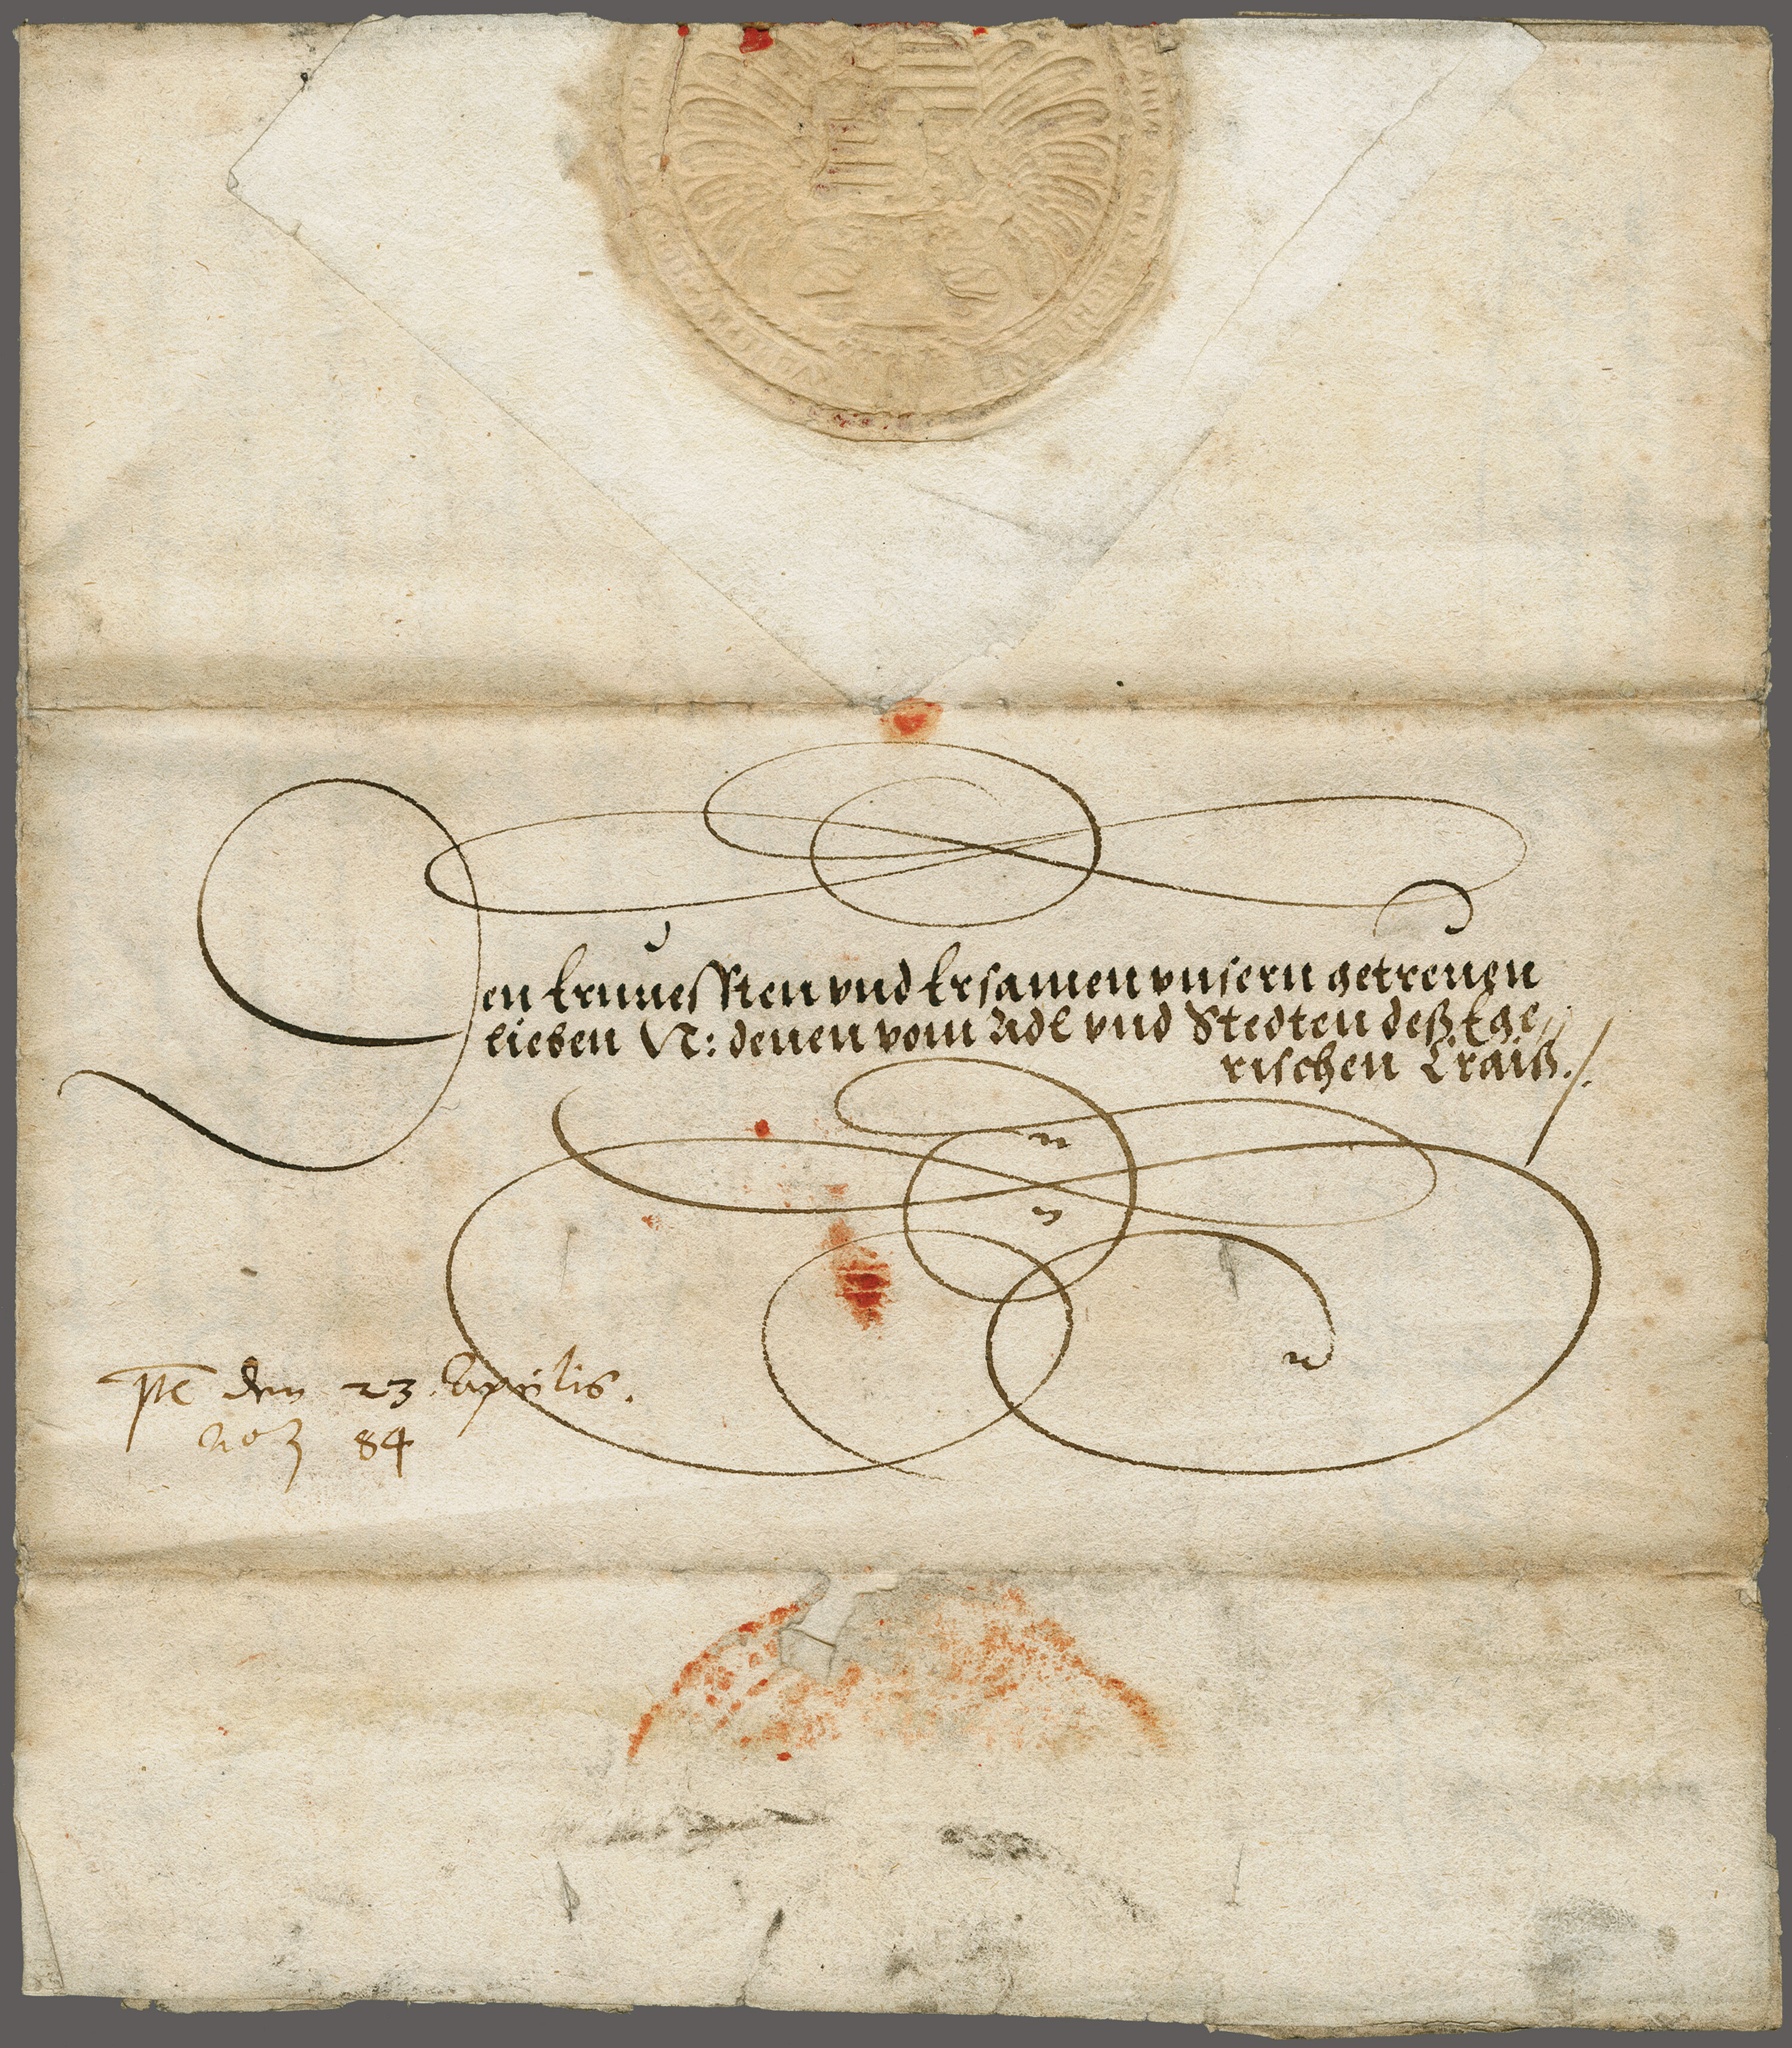 Den Ernuessten vnd Ersamen vnsern getreuen
lieben N: denen vom Adl vnd Stedten deß Ege//
rischen Craiß./.
pñt den 23. Aprilis.
84